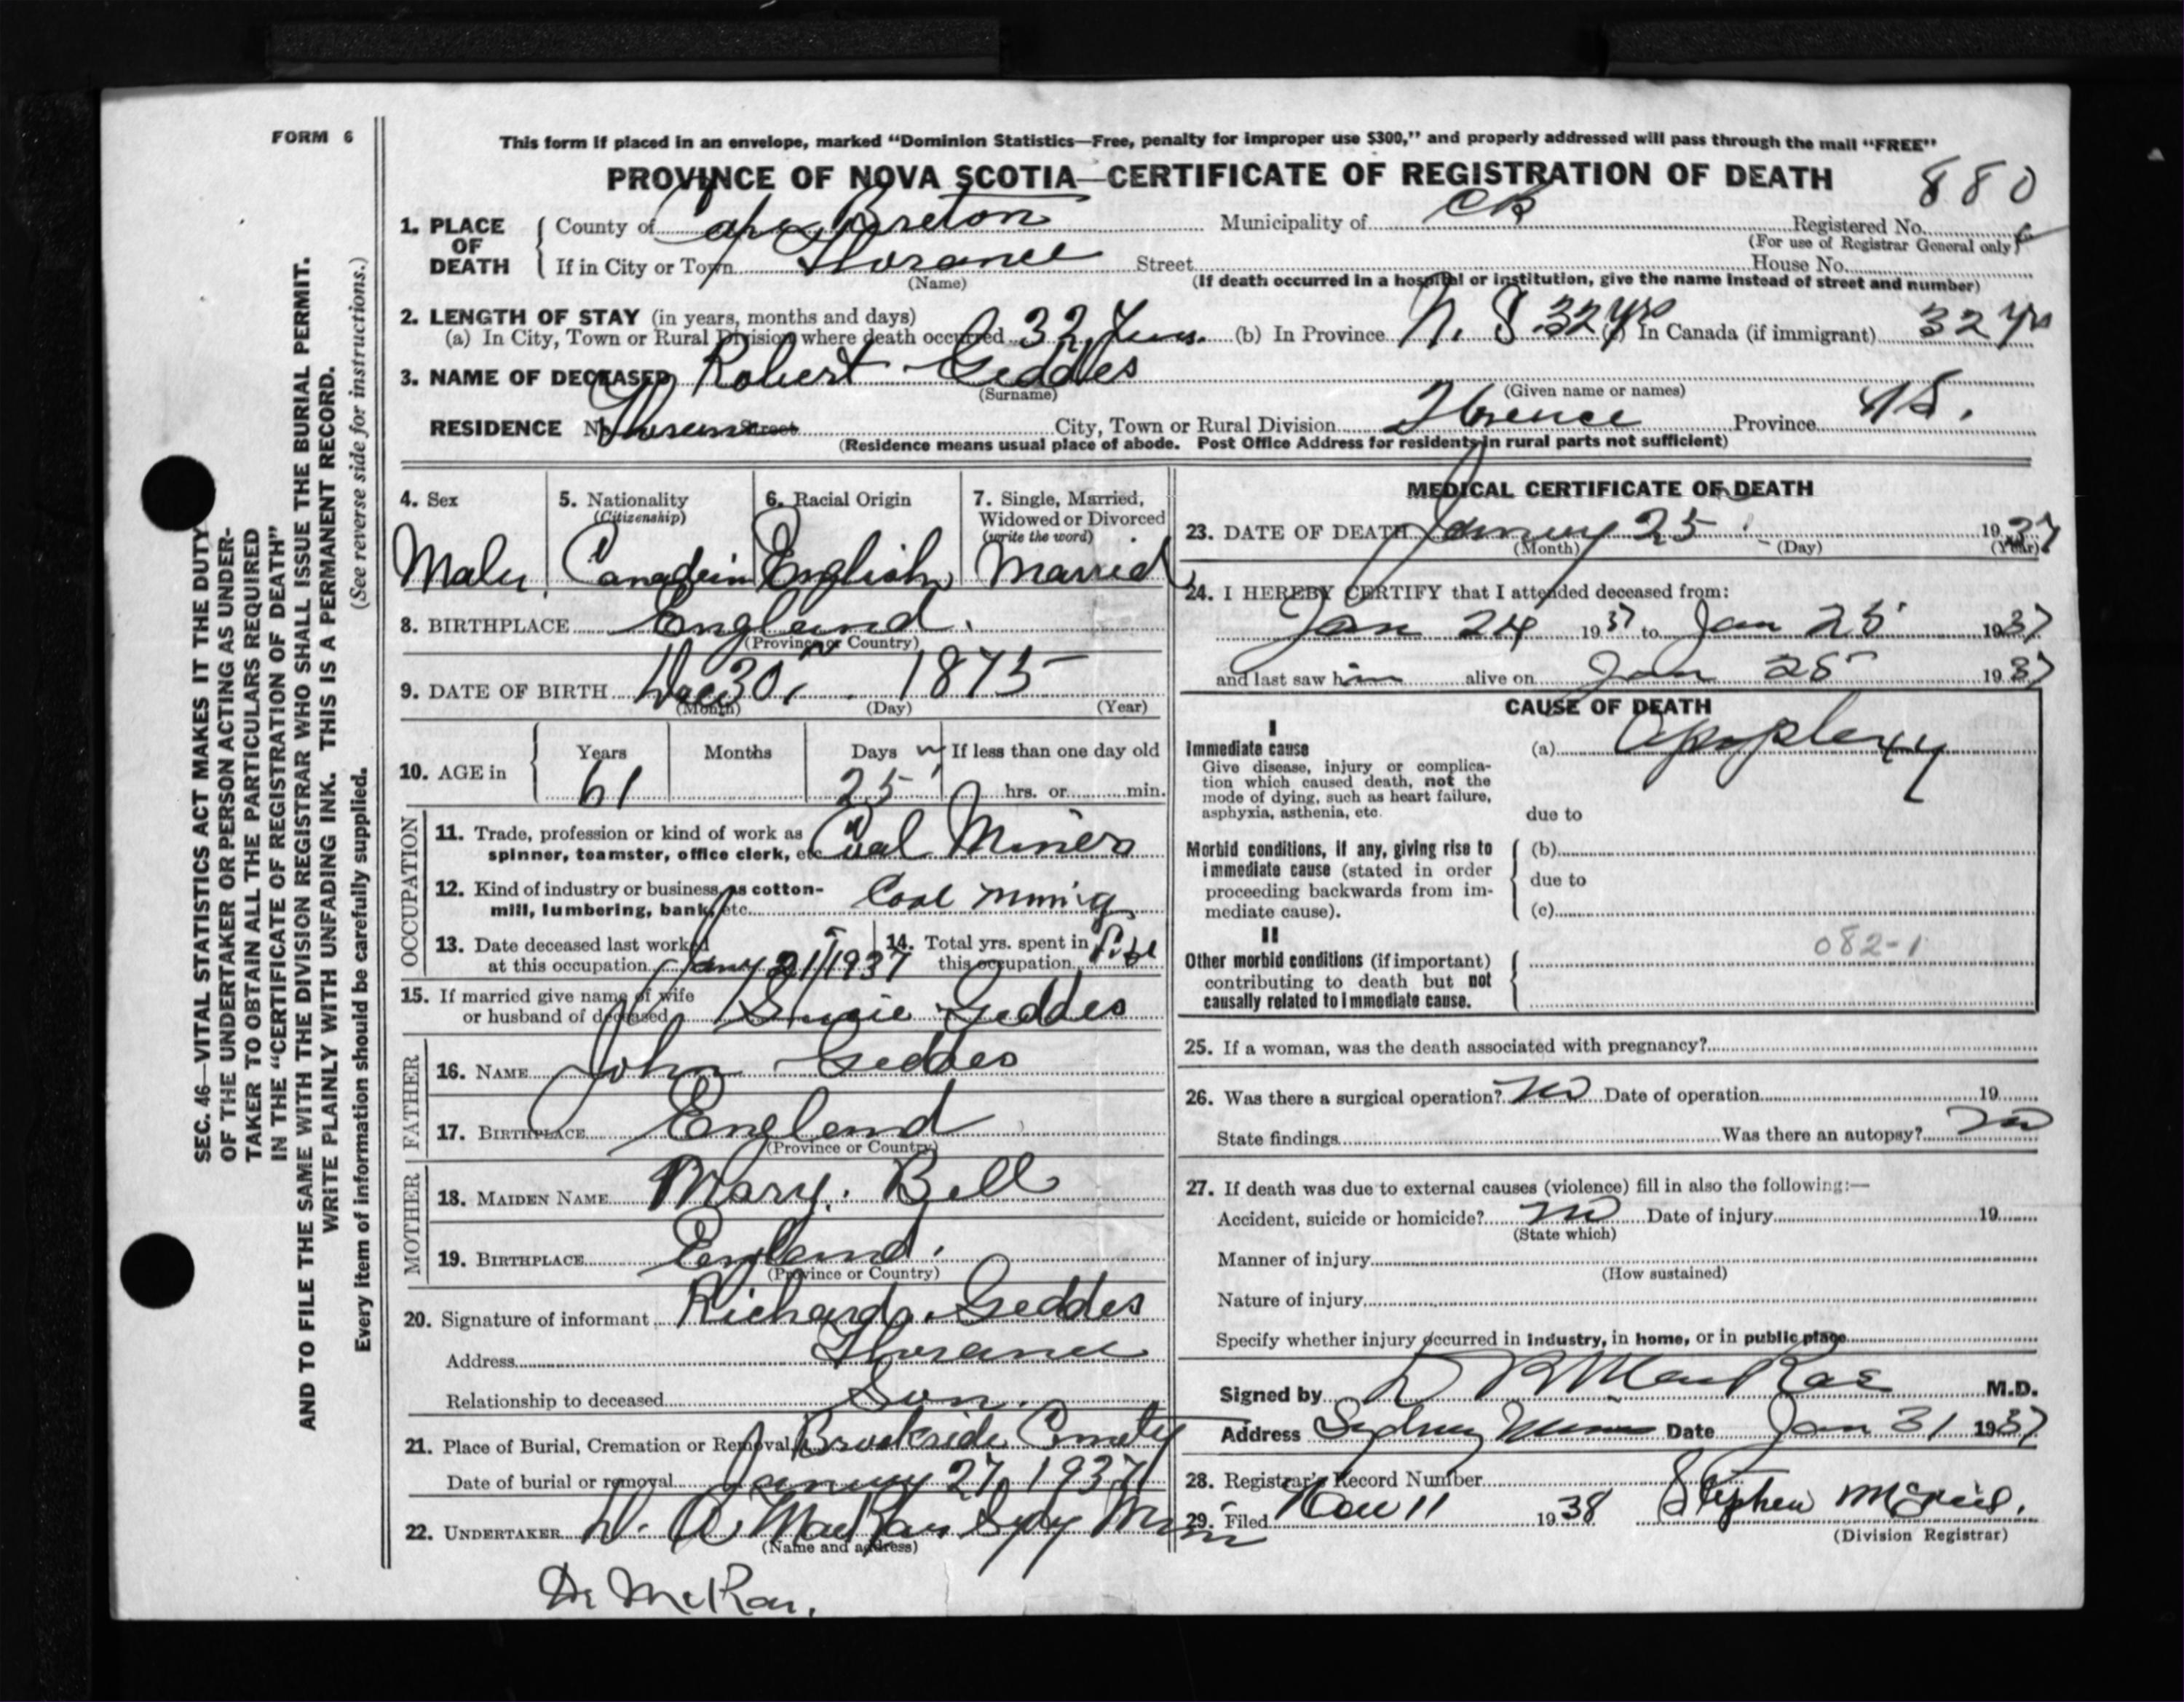 FORM 6
This form if placed in an envelope, marked “Dominion Statistics—Free, penalty for improper use $300,” and properly addressed will pass through the mail “FREE”
PROVINCE OF NOVA SCOTIA—CERTIFICATE OF REGISTRATION OF DEATH
880
1. PLACE OF DEATH
County of Cape Breton Municipality of CB Registered No.
(For use of Registrar General only)
If in City or Town Florance Street House No.
(Name) (If death occurred in a hospital or institution, give the name instead of street and number)
2. LENGTH OF STAY (in years, months and days)
(a) In City, Town or Rural Division where death occurred 32 Years (b) In Province N. S 32 yrs (c) In Canada (if immigrant) 32 yrs
3. NAME OF DECEASED Robert Geddes
(Surname) (Given name or names)
RESIDENCE No. Street City, Town or Rural Division Florence Province N.S.
(Residence means usual place of abode. Post Office Address for residents in rural parts not sufficient)
4. Sex
Male
5. Nationality
(Citizenship)
Canadein
6. Racial Origin
English
7. Single, Married,
Widowed or Divorced
(write the word)
Married
8. BIRTHPLACE England.
(Province or Country)
9. DATE OF BIRTH Dec 30, 1875
(Month) (Day) (Year)
10. AGE in
Years Months Days If less than one day old
61 25 hrs. or min.
OCCUPATION
11. Trade, profession or kind of work as
spinner, teamster, office clerk, etc. Coal Miner
12. Kind of industry or business, as cotton-
mill, lumbering, bank, etc. Coal mining
13. Date deceased last worked
at this occupation Jany 21 1937
14. Total yrs. spent in
this occupation Life
15. If married give name of wife
or husband of deceased Susie Geddes
FATHER
16. NAME John Geddes
17. BIRTHPLACE England
(Province or Country)
MOTHER
18. MAIDEN NAME Mary. Bell
19. BIRTHPLACE England.
(Province or Country)
20. Signature of informant Richard Geddes
Address Florance
Relationship to deceased Son.
21. Place of Burial, Cremation or Removal Brookside
Date of burial or removal January 27, 1937
22. UNDERTAKER
(Name and address)
Dr McRae.
MEDICAL CERTIFICATE OF DEATH
23. DATE OF DEATH January 25 1937
(Month) (Day) (Year)
24. I HEREBY CERTIFY that I attended deceased from:
Jan 24 1937 to Jan 25 1937
and last saw him alive on Jan 25 1937
CAUSE OF DEATH
I
Immediate cause
Give disease, injury or complica-
tion which caused death, not the
mode of dying, such as heart failure,
asphyxia, asthenia, etc.
(a) Apoplexy
due to
Morbid conditions, if any, giving rise to
immediate cause (stated in order
proceeding backwards from im-
mediate cause).
(b)
due to
(c)
II
Other morbid conditions (if important)
contributing to death but not
causally related to immediate cause.
082-1
25. If a woman, was the death associated with pregnancy?
26. Was there a surgical operation? no Date of operation 19
State findings Was there an autopsy? no
27. If death was due to external causes (violence) fill in also the following:—
Accident, suicide or homicide? no Date of injury 19
(State which)
Manner of injury
(How sustained)
Nature of injury
Specify whether injury occurred in industry, in home, or in public place
Signed by MacRae M.D.
Address Sydney Mines Date Jan 31 1937
28. Registrar's Record Number
29. Filed 11 1938 Stephen McNeil.
(Division Registrar)
SEC. 46—VITAL STATISTICS ACT MAKES IT THE DUTY
OF THE UNDERTAKER OR PERSON ACTING AS UNDER-
TAKER TO OBTAIN ALL THE PARTICULARS REQUIRED
IN THE “CERTIFICATE OF REGISTRATION OF DEATH”
AND TO FILE THE SAME WITH THE DIVISION REGISTRAR WHO SHALL ISSUE THE BURIAL PERMIT.
WRITE PLAINLY WITH UNFADING INK. THIS IS A PERMANENT RECORD.
Every item of information should be carefully supplied. (See reverse side for instructions.)